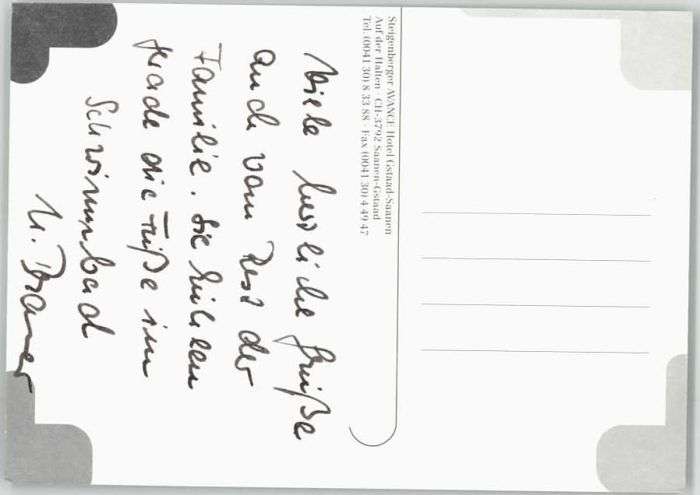 Steigenberger AVANCE Hotel Gstaad-Saanen
Auf der Halten · CH-3792 Saanen-Gstaad
Tel. (0041 30) 8 33 88 · Fax (0041 30) 4 49 47
Viele herzliche Grüße
auch vom Rest der
Familie. Sie kühlen
gerade die Füße im
Schwimmbad